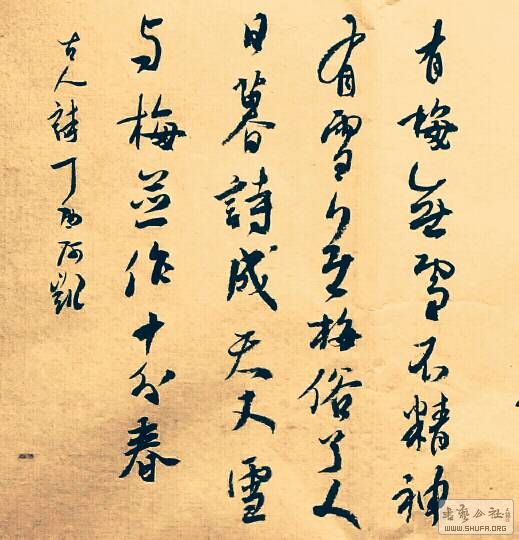 有梅無雪不精神
有雪無梅俗了人
日暮詩成天又雪
与梅並作十分春
古人詩丁酉阿凱
書藝公社
WWW.SHUFA.ORG